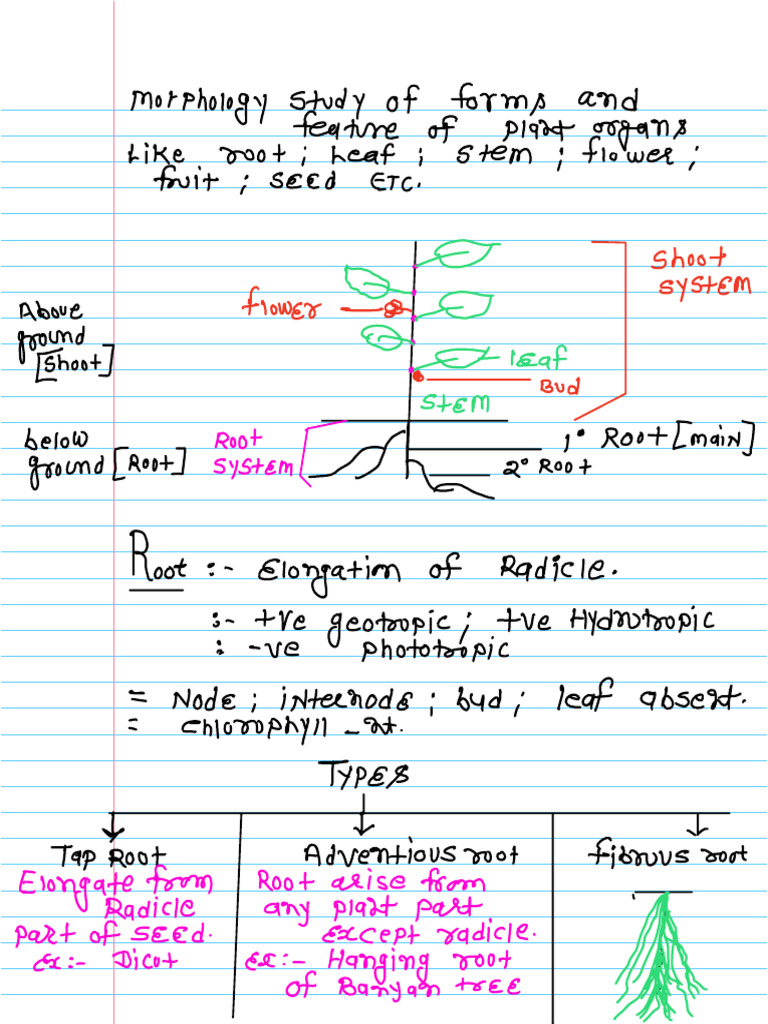 Morphology study of forms and
feature of plant organs
Like root ; Leaf ; stem ; flower ;
fruit ; SEED ETC.
Shoot
SYSTEM
flower
Above
ground
[Shoot]
leaf
Bud
STEM
below
ground [Root]
Root
SYSTEM
1° Root [MAIN]
2° Root
Root :- Elongation of Radicle.
:- +ve geotropic ; +ve Hydrotropic
: -ve phototropic
= NODE ; internode ; bud ; leaf absent.
= chlorophyll -nt.
TYPES
Tap Root
Elongate from
Radicle
part of SEED.
Ex:- Dicot
Adventious root
Root arise from
any plant part
except radicle.
Ex:- Hanging root
of Banyan tree
fibruus root